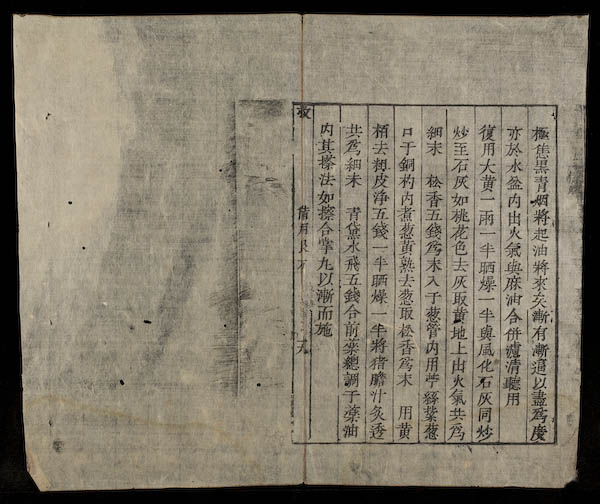 極焦黑青烟將起油將來矣漸有漸逼以盡爲度
亦於水盆內出火氣與麻油合併瀝清聽用
復用大黃一兩一半晒燥一半與風化石灰同炒
炒至石灰如桃花色去灰取黃地上出火氣共爲
細末　松香五錢爲末入于葱管內用苧縧縶葱
口于銅杓內煮葱黃熟去葱取松香爲末　用黃
栢去粗皮淨五錢一半晒燥一半將猪膽汁灸透
共爲細末　青黛水飛五錢合前藥總調于藥油
內其搽法如搽合掌丸以漸而施
備用良方